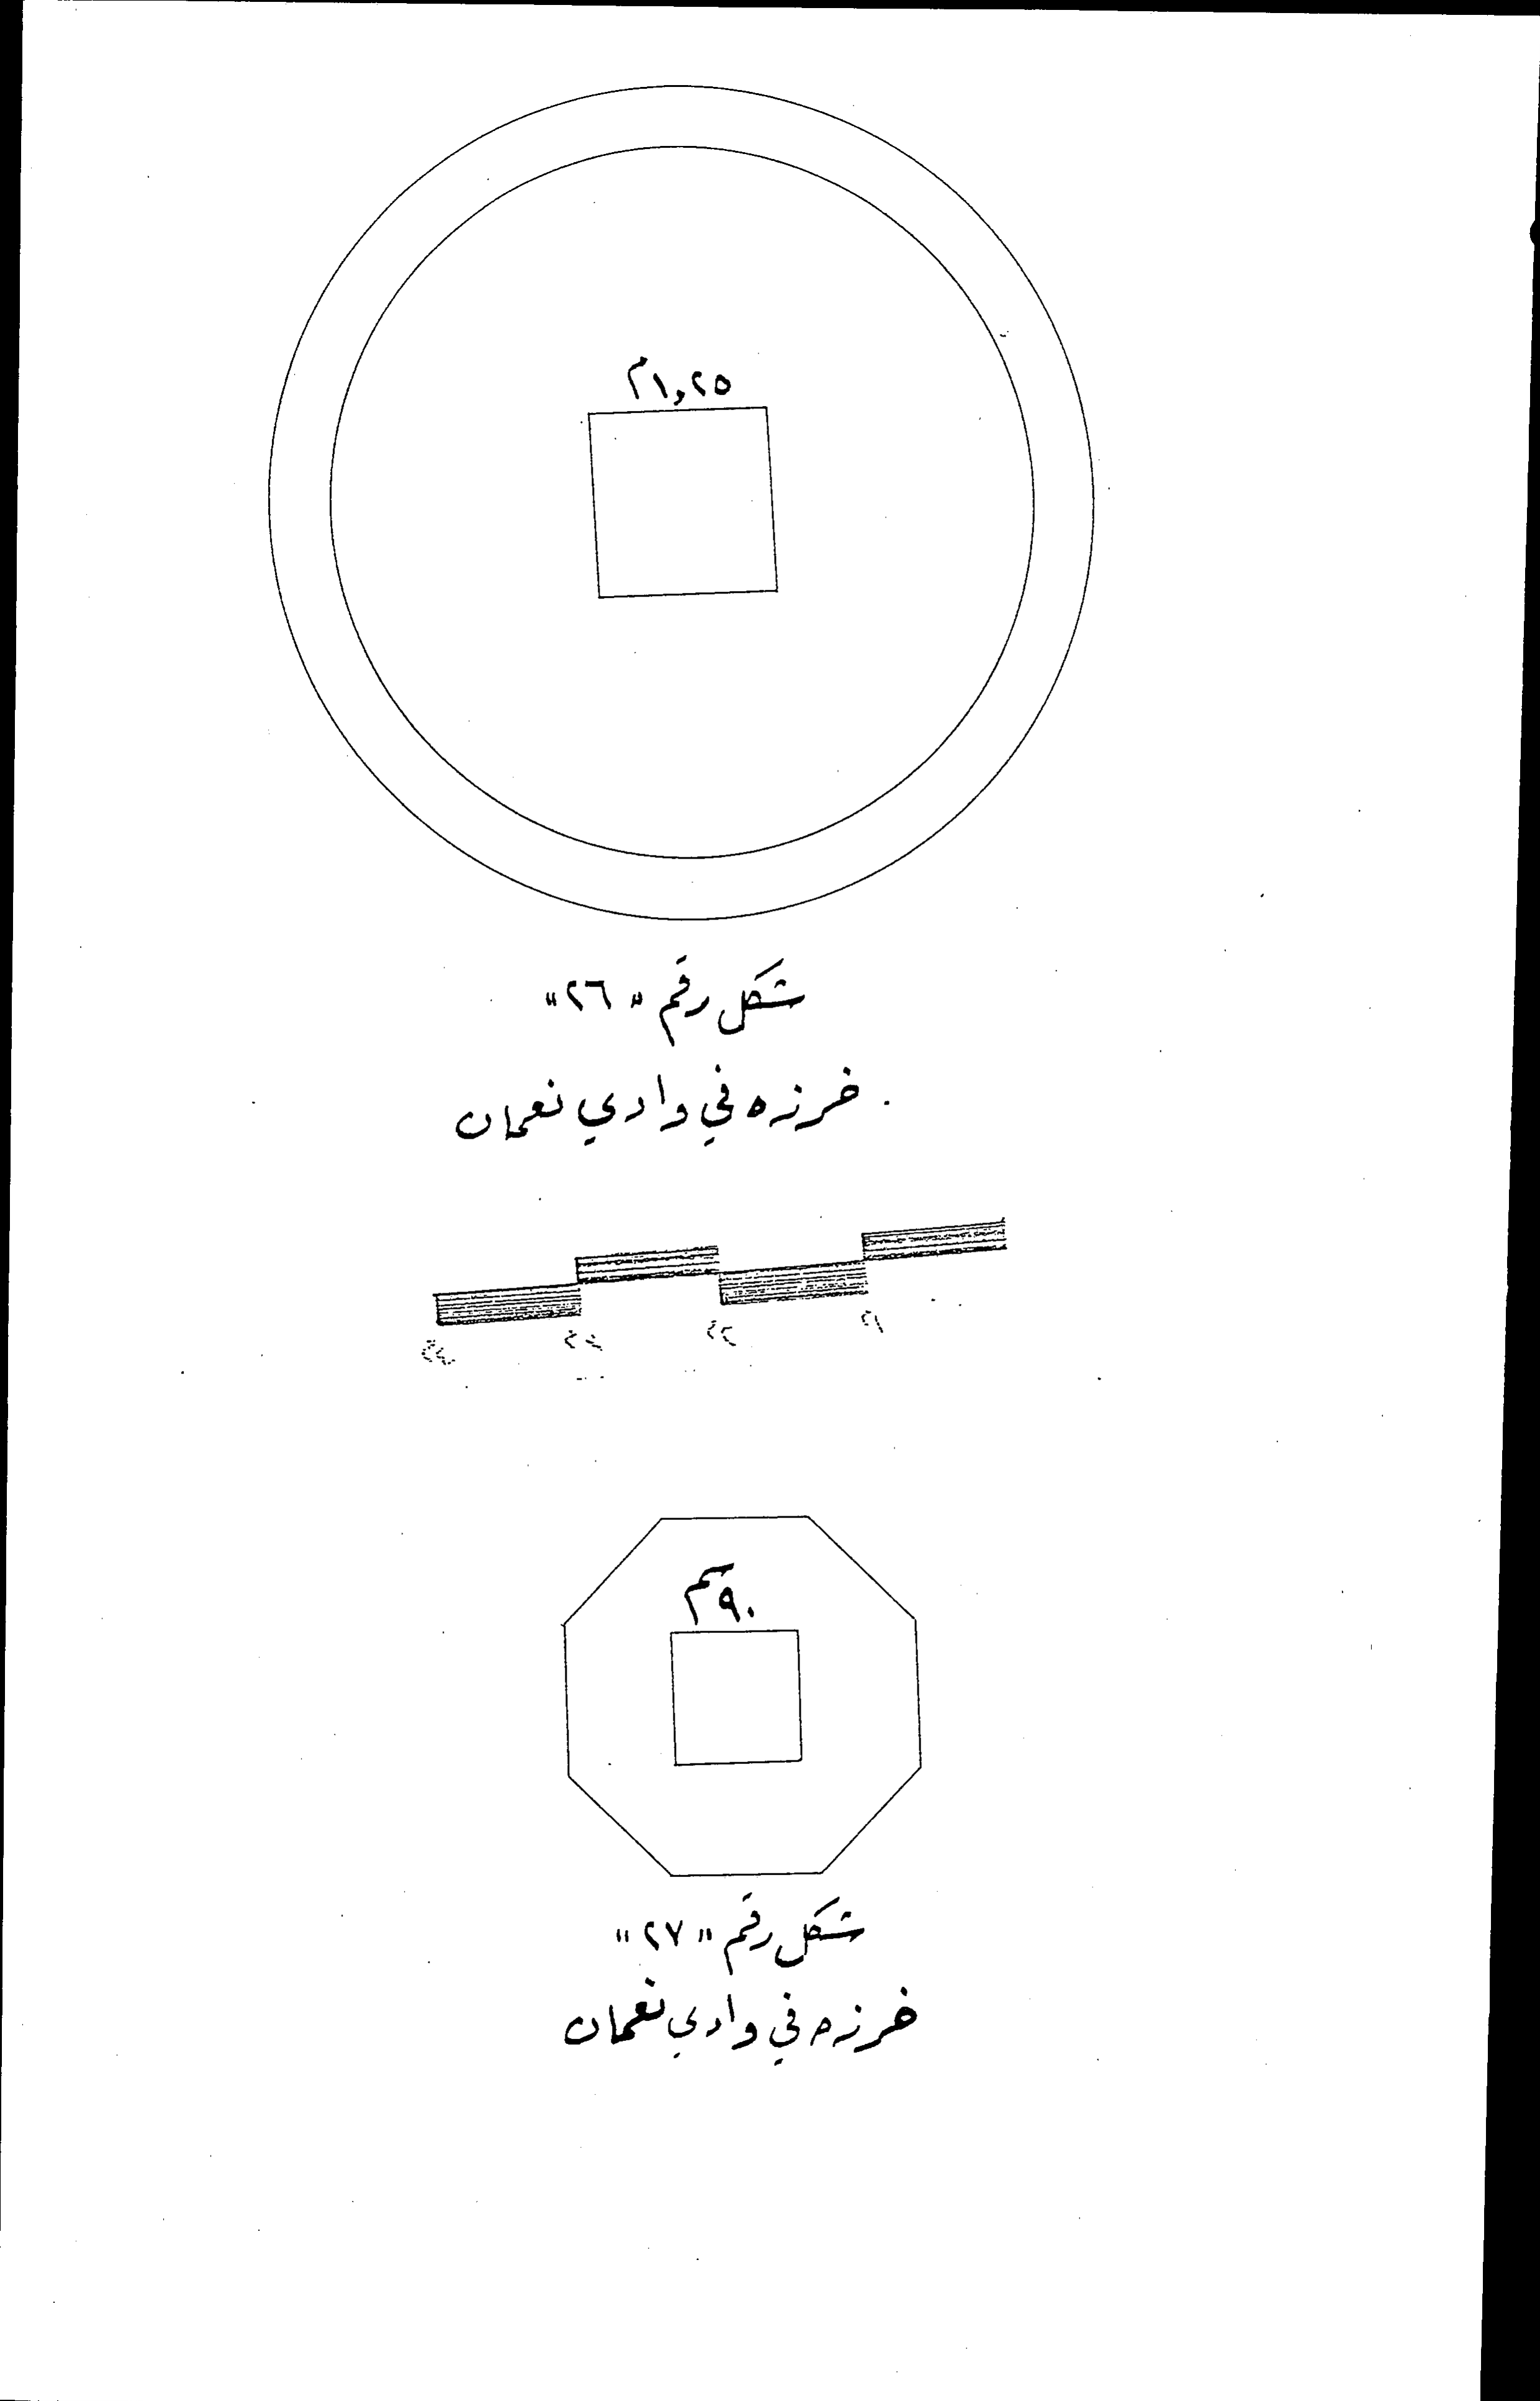 ١,٢٥م
شكل رقم "٢٦"
خرزه في وادي نعمان
١م
٢م
٣م
٤م
٩٠سم
شكل رقم "٢٧"
خرزه في وادي نعمان